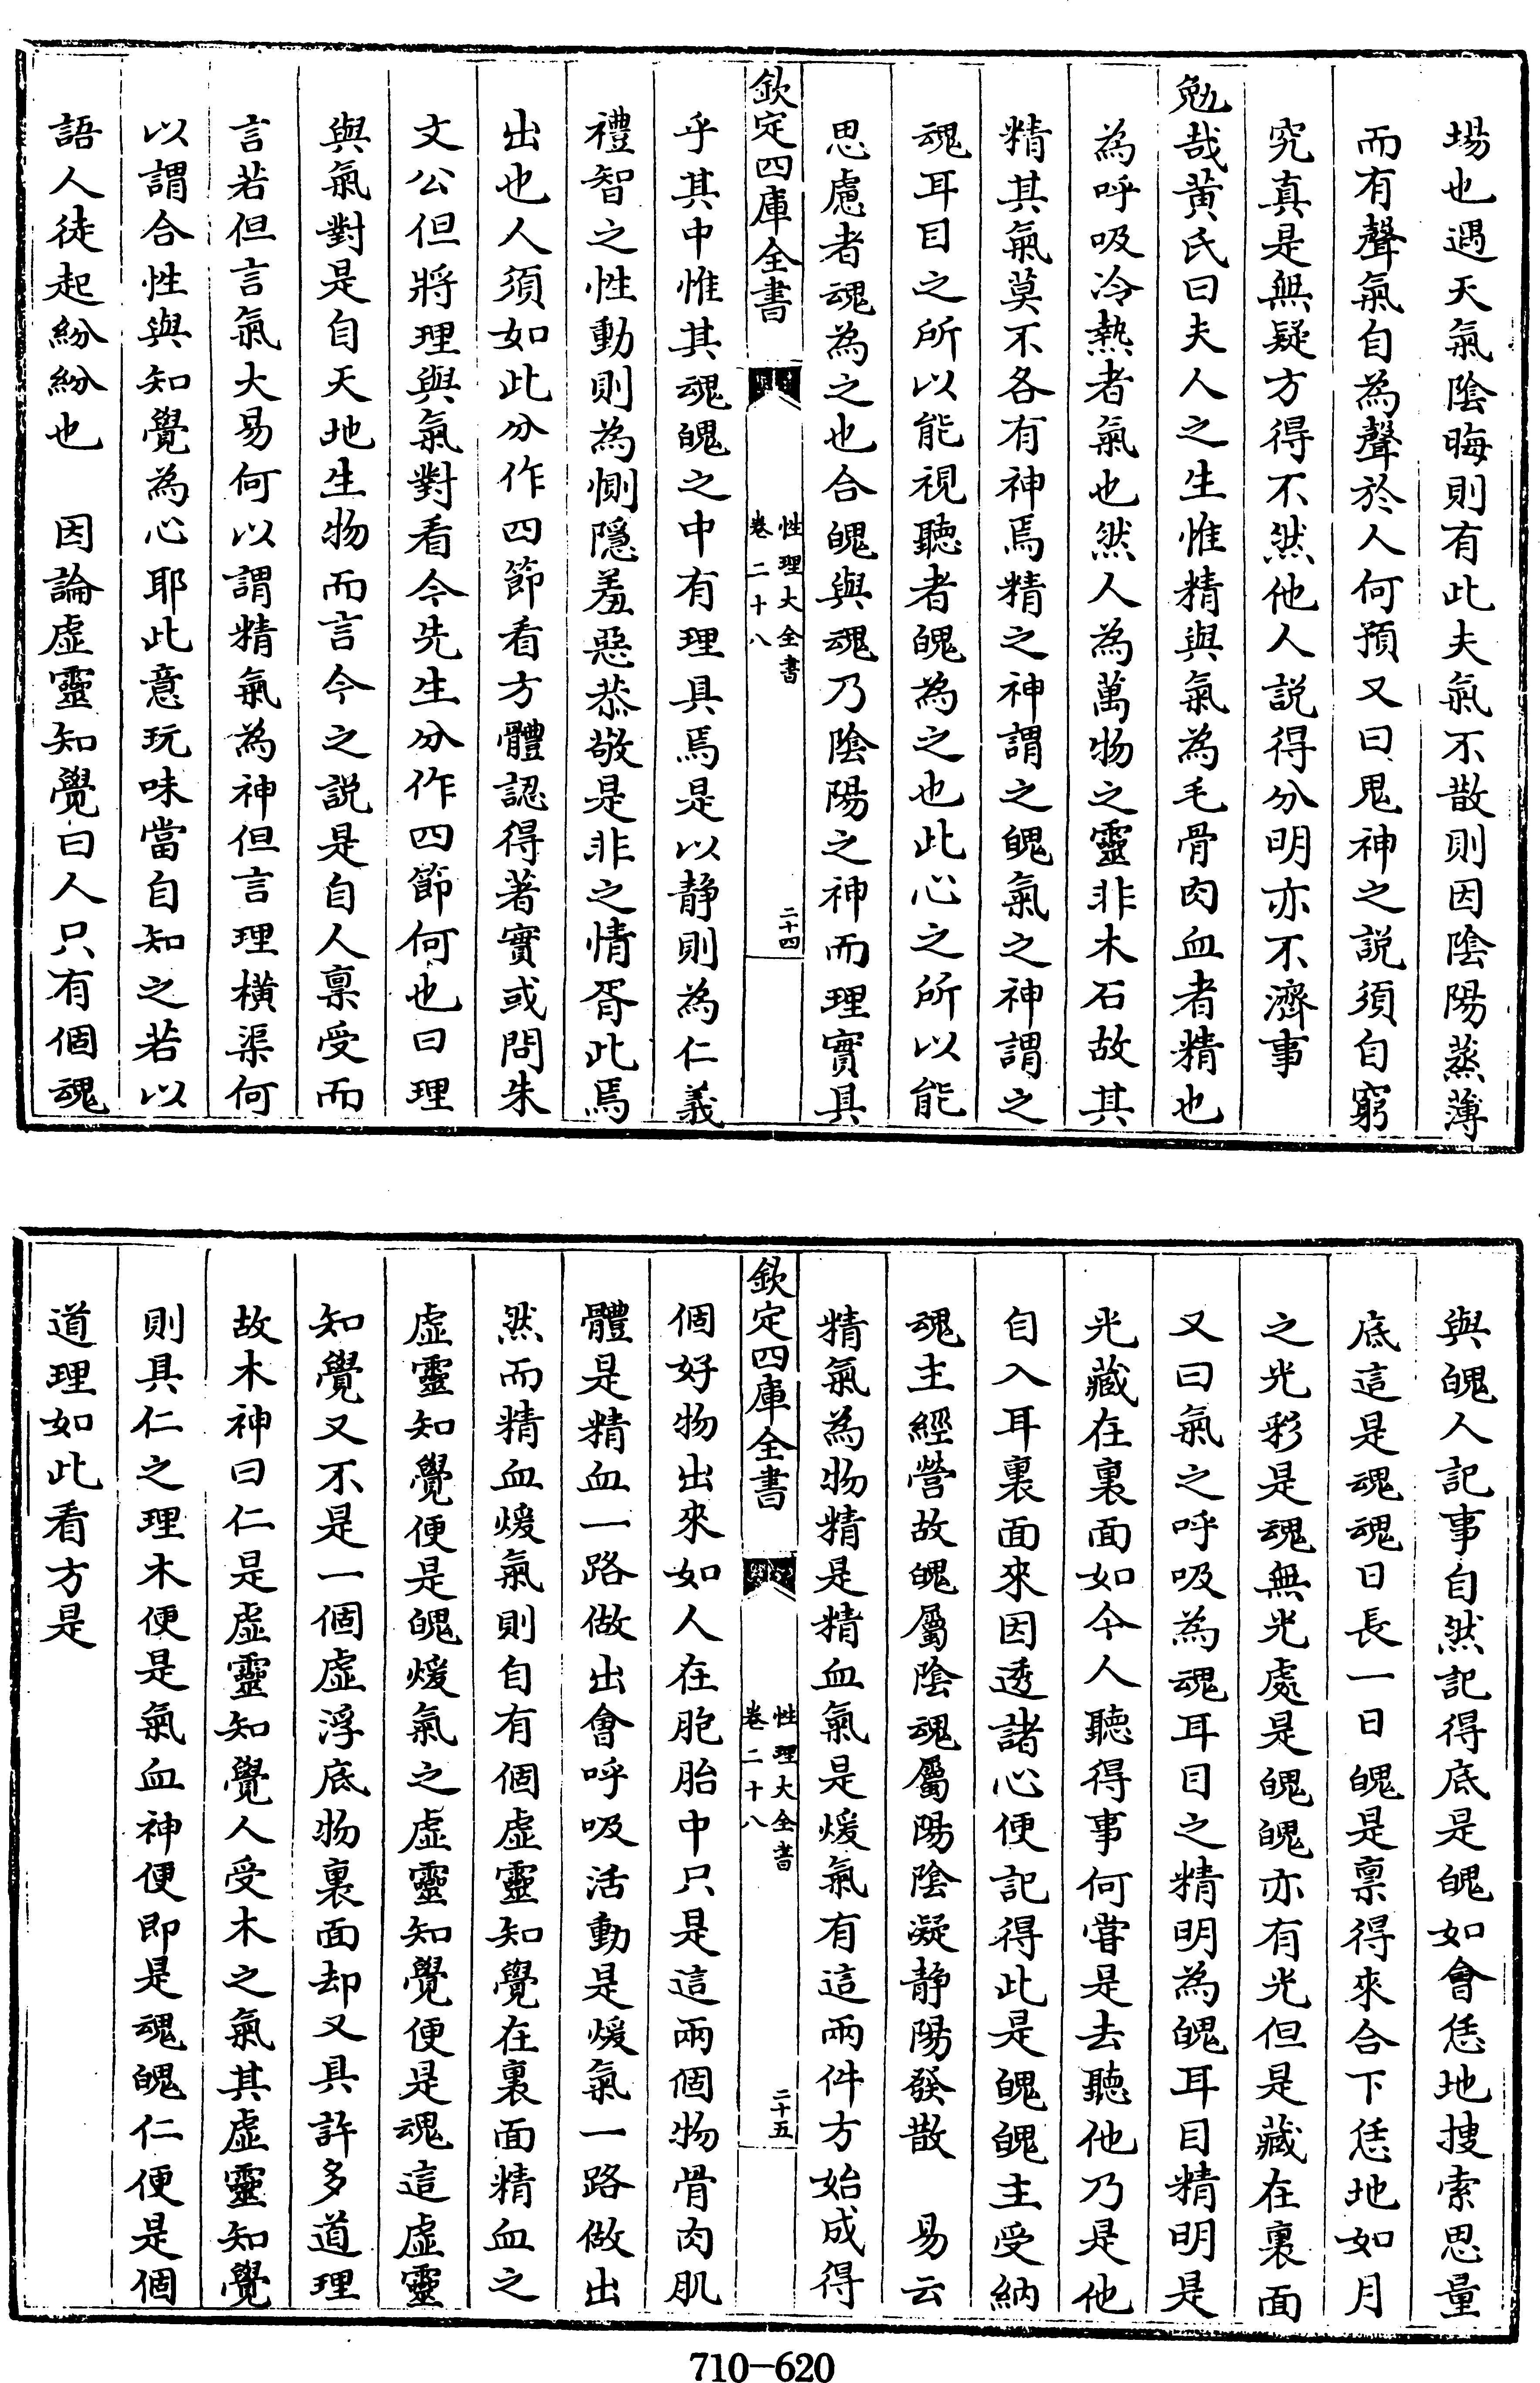 場也遇天氣陰晦則有此夫氣不散則因陰陽蒸薄
而有聲氣自為聲於人何預又曰鬼神之説須自窮
究真是無疑方得不然他人説得分明亦不濟事
勉哉黄氏曰夫人之生惟精與氣為毛骨肉血者精也
為呼吸冷熱者氣也然人為萬物之靈非木石故其
精其氣莫不各有神焉精之神謂之魄氣之神謂之
魂耳目之所以能視聽者魄為之也此心之所以能
思慮者魂為之也合魄與魂乃陰陽之神而理實具
欽定四庫全書
性理大全書
卷二十八
二十四
乎其中惟其魂魄之中有理具焉是以静則為仁義
禮智之性動則為惻隱羞惡恭敬是非之情胥此焉
出也人須如此分作四節看方體認得著實或問朱
文公但將理與氣對看今先生分作四節何也曰理
與氣對是自天地生物而言今之説是自人禀受而
言若但言氣大易何以謂精氣為神但言理横渠何
以謂合性與知覺為心耶此意玩味當自知之若以
語人徒起紛紛也　因論虛靈知覺曰人只有個魂
與魄人記事自然記得底是魄如會恁地搜索思量
底這是魂魂日長一日魄是禀得來合下恁地如月
之光彩是魂無光處是魄魄亦有光但是藏在裏面
又曰氣之呼吸為魂耳目之精明為魄耳目精明是
光藏在裏面如今人聽得事何嘗是去聽他乃是他
自入耳裏面來因透諸心便記得此是魄魄主受納
魂主經營故魄屬陰魂屬陽陰凝静陽發散　易云
精氣為物精是精血氣是煖氣有這兩件方始成得
欽定四庫全書
性理大全書
卷二十八
二十五
個好物出來如人在胞胎中只是這兩個物骨肉肌
體是精血一路做出會呼吸活動是煖氣一路做出
然而精血煖氣則自有個虛靈知覺在裏面精血之
虛靈知覺便是魄煖氣之虛靈知覺便是魂這虛靈
知覺又不是一個虛浮底物裏面却又具許多道理
故木神曰仁是虛靈知覺人受木之氣其虛靈知覺
則具仁之理木便是氣血神便即是魂魄仁便是個
道理如此看方是
710-620